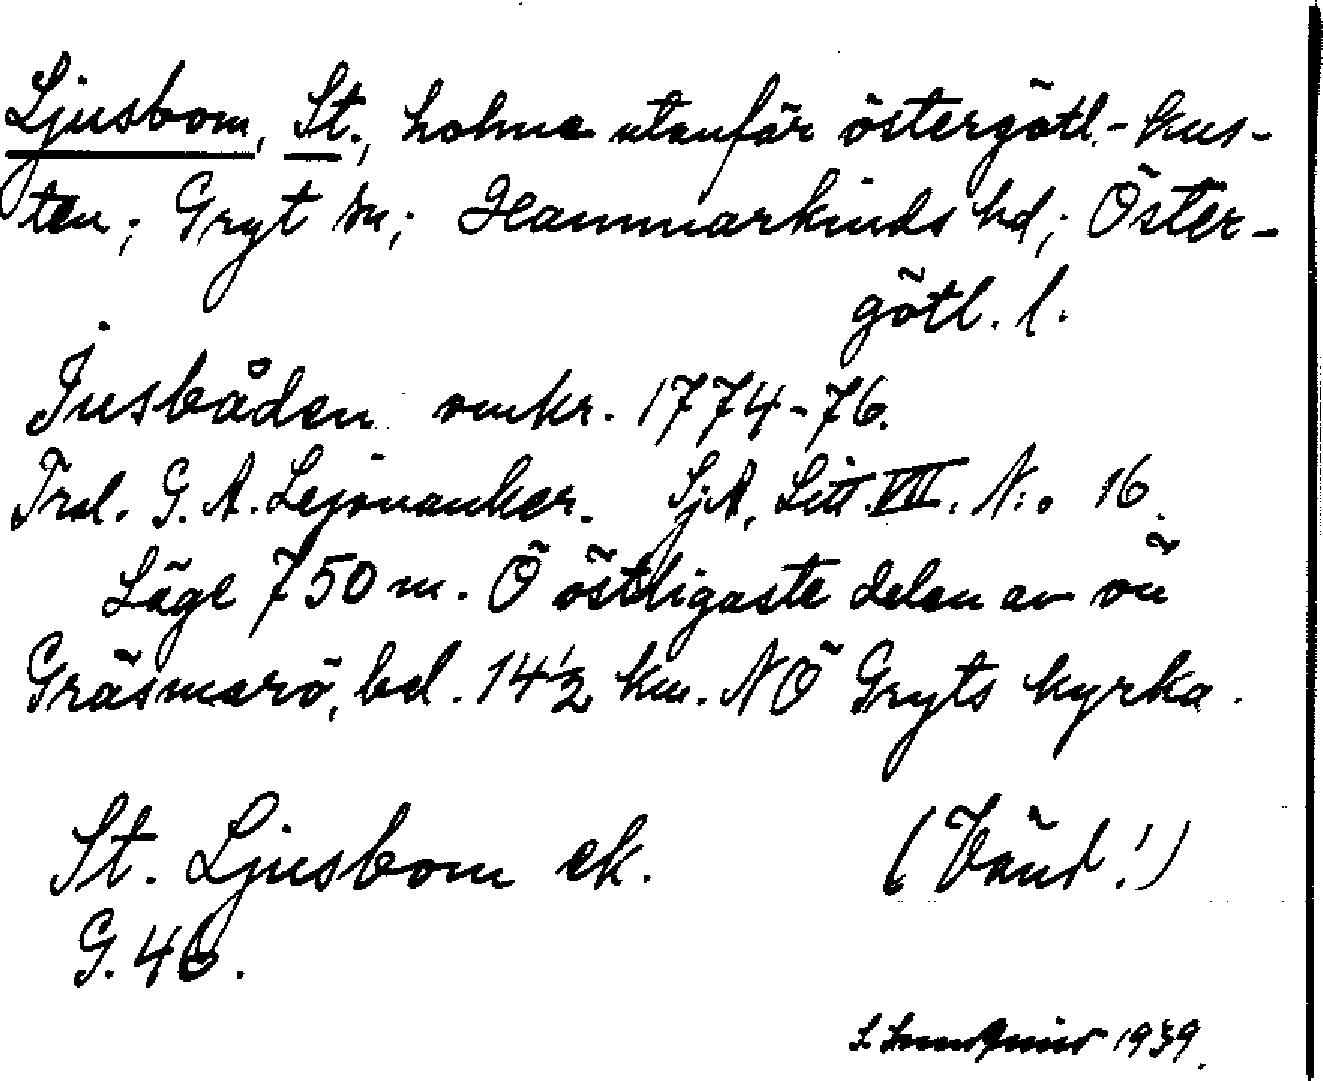 Ljusbom, St., holme utanför östergötl.-kus-
ten; Gryt sn; Hammarkinds hd; Öster-
götl. l.
Jusbåden omkr. 1774-76.
Trol. G. A. Lejonanker. SjA, Litt. VII. N:o 16.
Läge 750 m. Ö östligaste delen av ön
Gräsmarö, bel. 14½ km. NÖ Gryts kyrka.
St. Ljusbom ek. (Vänd!)
G. 46.
1939.